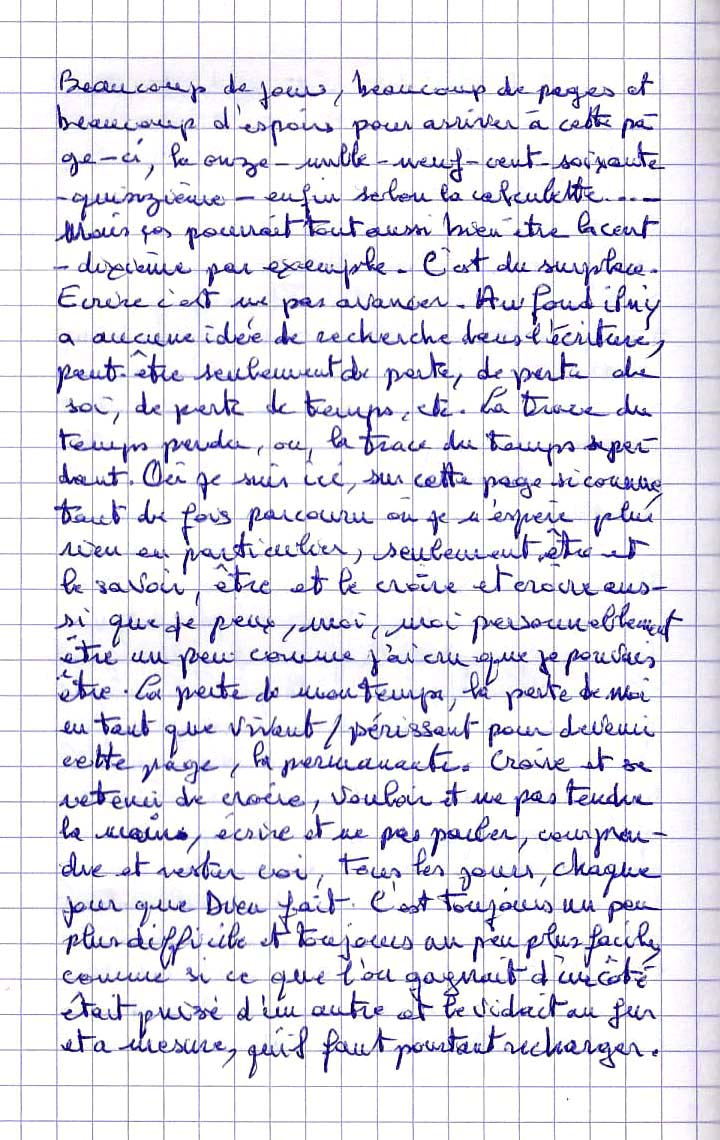 Beaucoup de jours, beaucoup de pages et
beaucoup d'espoirs pour arriver à cette pa
ge-ci, la onze-mille-neuf-cent-soixante
-quinzième - enfin selon la calculette....
Mais ça pourrait tout aussi bien être la cent
-dixième par exemple. C'est du surplace.
Ecrire c'est ne pas avancer. Au fond il n'y
a aucune idée de recherche dans l'écriture,
peut-être seulement de perte, de perte de
soi, de perte de temps, etc. La trace du
temps perdu, ou, la trace du temps se per-
dant. Où je suis ici, sur cette page si connue,
tant de fois parcouru où je n'espère plus
rien en particulier, seulement être et
le savoir, être et le croire et croire aus-
si que je peux, moi, moi personnellement
être un peu comme j'ai cru que je pouvais
être. La perte de mon temps, la perte de moi
en tant que vivant / périssant pour devenir
cette page, la permanente. Croire et se
retenir de croire, vouloir et ne pas tendre
la main, écrire et ne pas parler, compren-
dre et rester coi, tous les jours, chaque
jour que Dieu fait. C'est toujours un peu
plus difficile et toujours un peu plus facile,
comme si ce que l'on gagnait d'un côté
était puisé d'un autre et le vidait au fur
et a mesure, qu'il faut pourtant recharger.